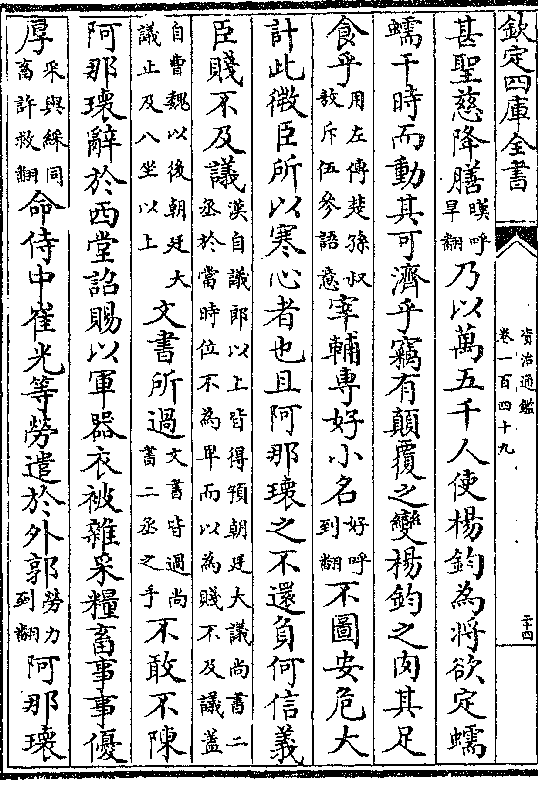 欽定四庫全書
資治通鑑
卷一百四十九
二十四
甚聖慈降膳暵呼旱翻乃以萬五千人使楊鈞為將欲定蠕
蠕干時而動其可濟乎竊有顛覆之變楊鈞之肉其足
食乎用左傳楚孫叔敖斥伍參語意宰輔専好小名好呼到翻不圖安危大
計此微臣所以寒心者也且阿那瓌之不還負何信義
臣賤不及議漢自議郎以上皆得預朝廷大議尚書二丞於當時位不為卑而以為賤不及議蓋
自曹魏以後朝廷大議止及八坐以上文書所過文書皆過尚書二丞之手不敢不陳
阿那瓌辭於西堂詔賜以軍器衣被雜采糧畜事事優
厚采與綵同畜許救翻命侍中崔光等勞遣於外郭勞力到翻阿那瓌